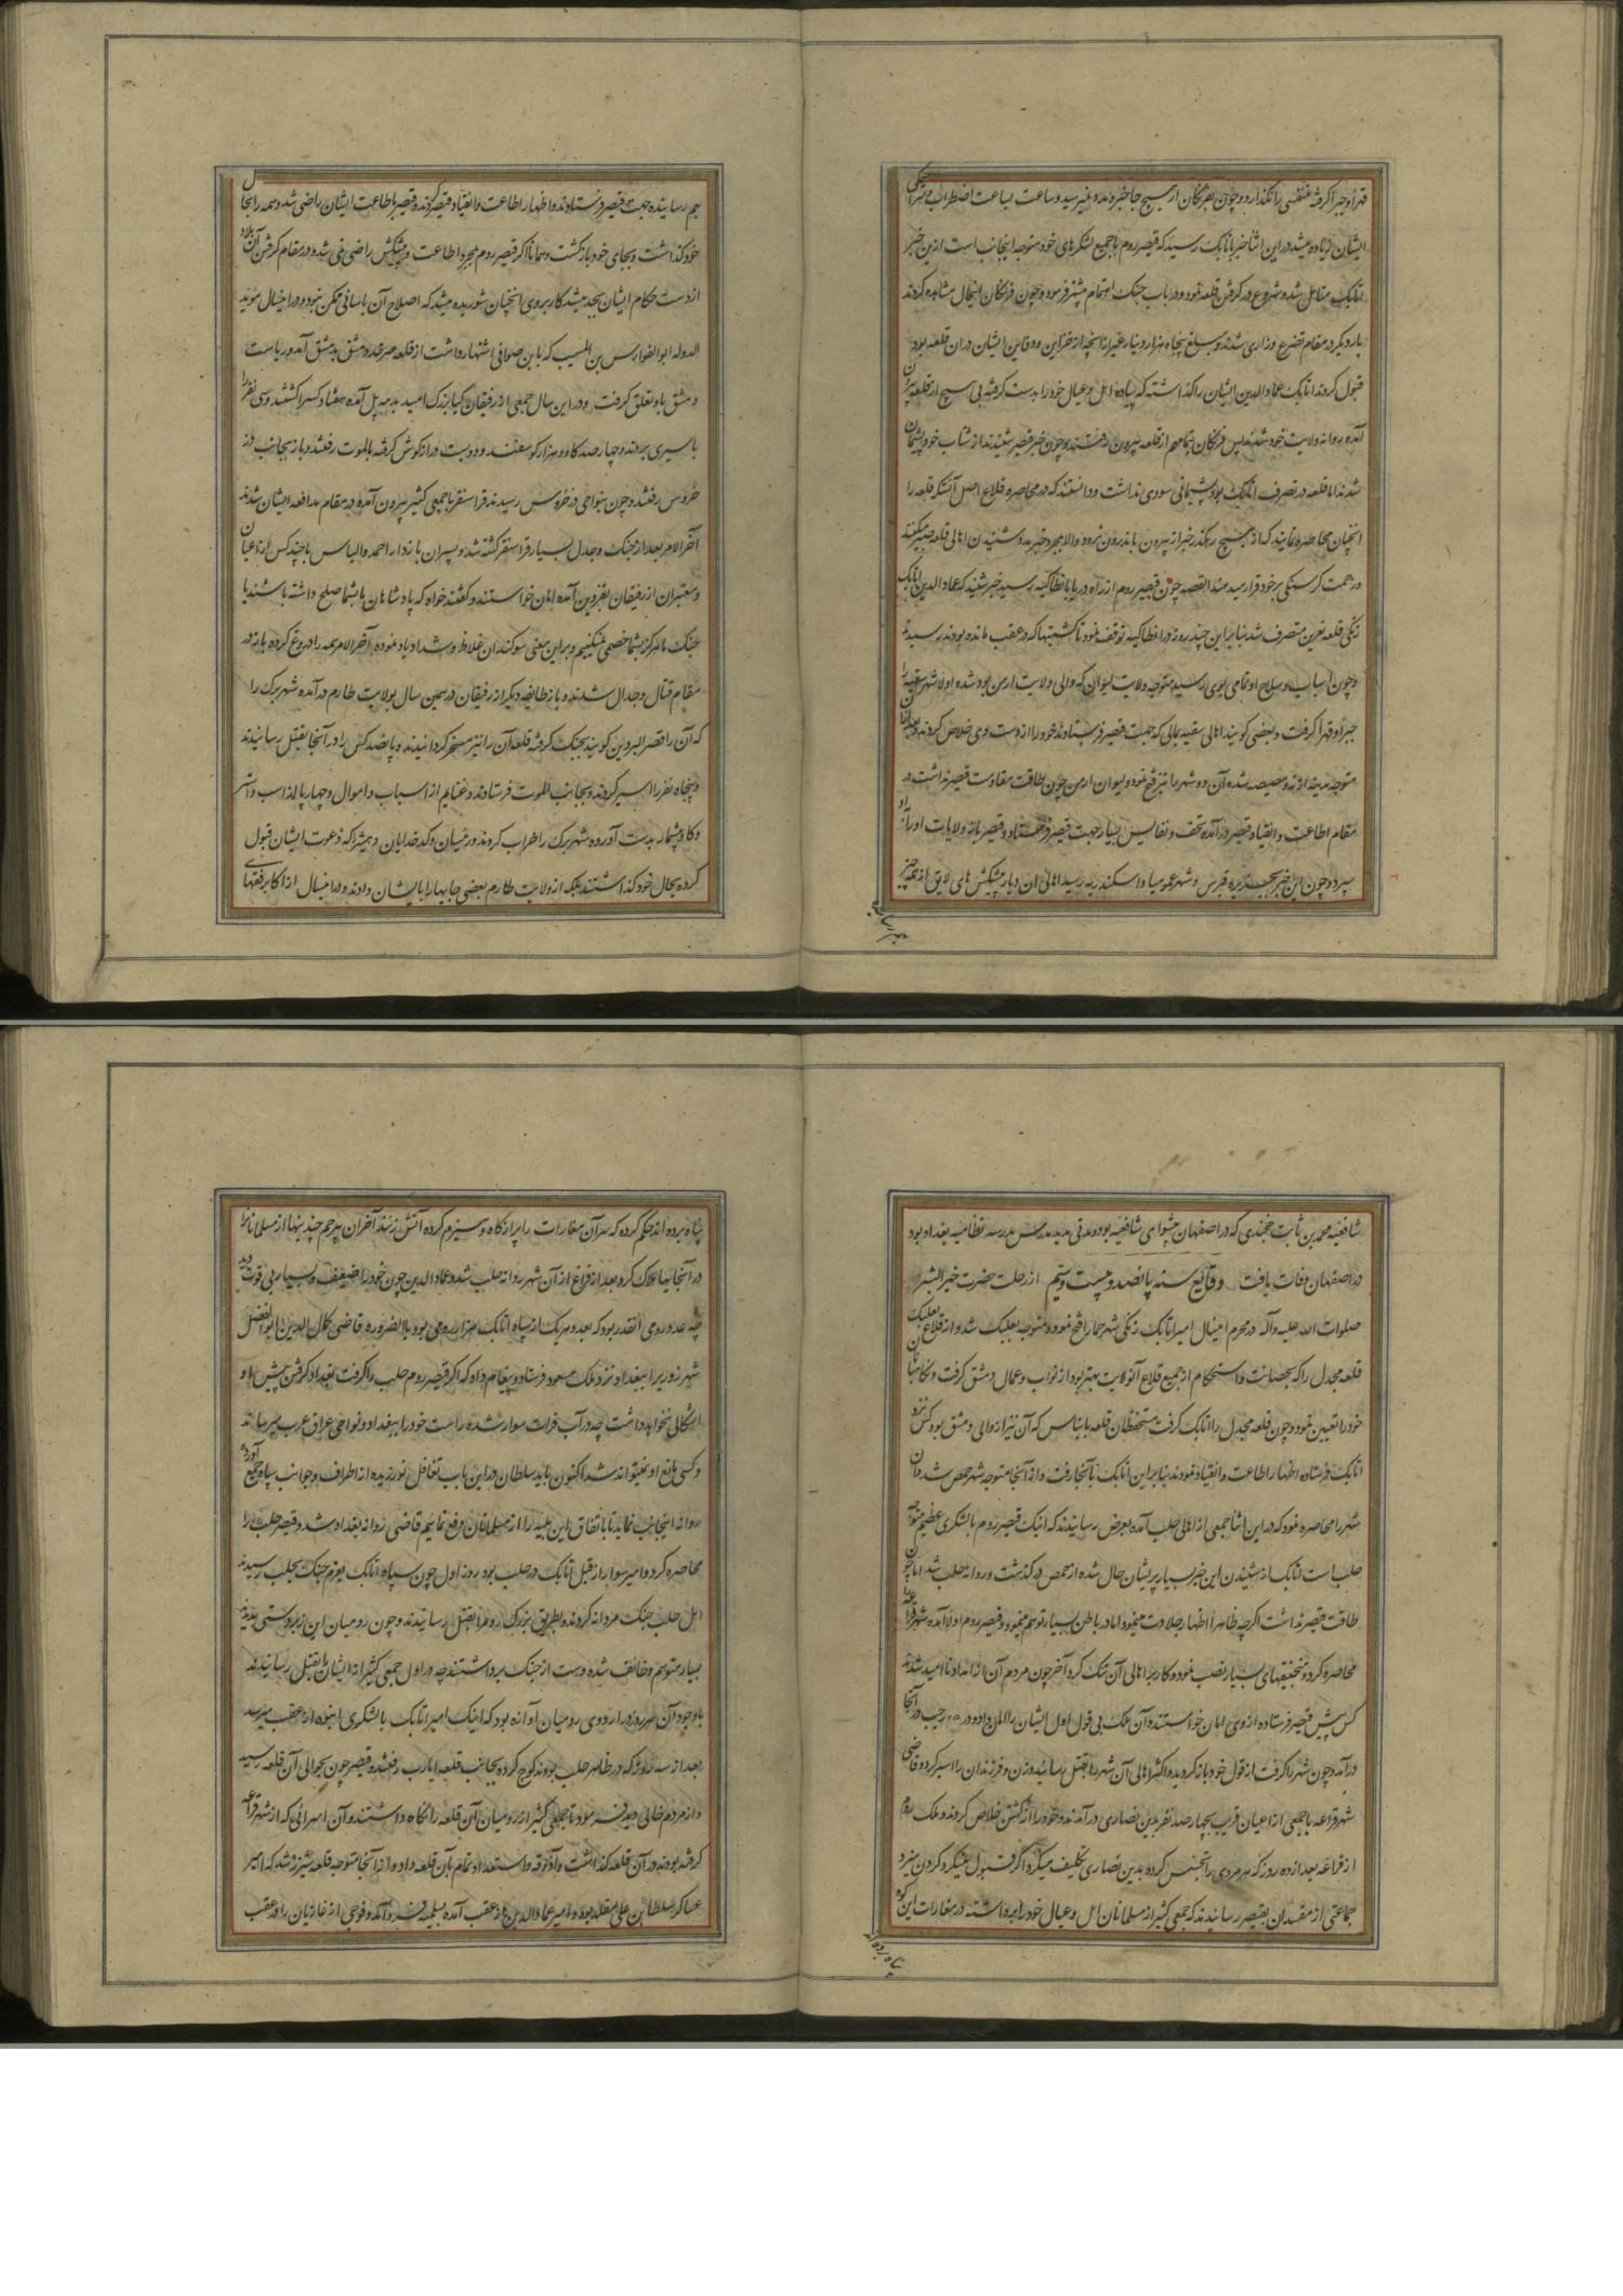 قهرا و جبرا گرفته متنفسی را نگذارد و چون بفرنگان از هیچ جا خبر و مدد نمیرسید و ساعت بساعت اضطراب و سراسیمگی
ایشان زیاده میشد در این اثنا خبر باتابک رسید که قیصر روم با جمیع لشکرهای خود متوجه اینجانب است ازین خبر
اتابک متامل شد و شروع در گرفتن قلعه نمود و در باب جنک اهتمام بیشتر فرمود و چون فرنگان اینحال مشاهده کردند
بار دیگر در مقام تضرع و زاری شدند و مبلغ پنجاه هزار دینار غیر از آنچه از خزاین و دفاین ایشان در ان قلعه بود
قبول کردند اتابک عماد الدین ایشان را گذاشته که پیاده اهل و عیال خود را بدست گرفته بی هیچ از قلعه بیرون
آمده روانه ولایت خود شدند پس فرنگان بتمامهم از قلعه بیرون رفتند و چون خبر قیصر شنیدند از شتاب خود پشیمان
شدند اما قلعه در تصرف اتابک بود پشیمانی سودی نداشت و دانستند که در محاصره قلاع اصل آنستکه قلعه را
انچنان محاصره نمایند که از هیچ رهگذر خبر از بیرون باندرون نرود والا بمجرد خبر مدد شنیدن اهالی قلعه صبر میکنند
و زحمت گرسنگی بر خود قرار میدهند القصه چون قیصر روم از راه دریا بانطاکیه رسید خبر شنید که عماد الدین اتابک
زنگی قلعه بعرین متصرف شد بنابراین چند روز در انطاکیه توقف نمود تا کشتیها که در عقب مانده بودند رسیدند
و چون اسباب و سلاح او تمامی بوی رسید متوجه ولایت لیوان که والی ولایت ارمن بود شده اولا شهر نیقیه را
جبرا و قهرا گرفت و بعضی گویند اهالی نیقیه بمالی که جهت قیصر فرستادند خود را از دست وی خلاص کردند و بعد از آن
متوجه مدینه اذنه و مصیصه شده آن دو شهر را نیز فتح نمود و لیوان ارمن چون طاقت مقاومت قیصر نداشت در
مقام اطاعت و انقیاد قیصر در آمده تحف و نفایس بسیار جهت قیصر فرستاد و قیصر باز ولایات او را باو
سپرد و چون این خبر بجزیره قبرس و شهر عموریا و اسکندریه رسید اهالی ان دیار پیشکش های لایق از همه چیز
بهم رسانیده جهت قیصر فرستادند و اظهار اطاعت و انقیاد قیصر کردند و قیصر باطاعت ایشان راضی شد و همه را بحال
خود گذاشت و بجای خود بازگشت و همانا اگر قیصر روم بمجرد اطاعت و پیشکش راضی نمی شد و در مقام گرفتن آن بلاد
از دست حکام ایشان بجد میشد کار بروی انچنان شوریده میشد که اصلاح آن باسانی ممکن نبود و در اینسال موید
الدوله ابو الفوارس بن المسیب که بابن صوافی اشتهار داشت از قلعه صرخد دمشق بدمشق آمد و ریاست
دمشق باو تعلق گرفت و در این سال جمعی از رفیقان کیا بزرک امید بدمه پل آمده هفتاد کس را کشتند و سی نفر را
باسیری بردند و چهار صد گاو و دو هزار گوسفند و دویست دراز گوش گرفته بالموت رفتند و باز بجانب دز
خروس رفتند و چون بنواحی دز خروس رسیدند قرا سنقر با جمعی کثیر بیرون آمده در مقام مدافعه ایشان شدند
آخر الامر بعد از جنک و جدل بسیار قرا سنقر کشته شد و پسران بازدار احمد و الیاس با چند کس از اعیان
و معتبران از رفیقان بقزوین آمده امان خواستند و گفتند خواه که پادشاهان با شما صلح داشته باشند یا
جنک ما هرگز بشما خصمی نمیکنیم و براین معنی سوگندان غلاظ و شداد یاد نموده آخر الامر همه را دروغ کرده باز در
مقام قتال و جدال شدند و باز طایفه دیگر از رفیقان در همین سال بولایت طارم در آمده شهر برک را
که آن را قصر البردین گویند بجنک گرفته قلعه آن را نیز مسخر گردانیدند و پانصد کس را در آنجا بقتل رسانیدند
و پنجاه نفر را اسیر کردند و بجانب الموت فرستادند و غنایم از اسباب و اموال و چهارپا از اسب و استر
و گاو بیشمار بدست آورده شهر برک را خراب کردند و رعیان و کدخدایان دهی را که دعوت ایشان قبول
کرده بحال خود گذاشتند بلکه از ولایت طارم بعضی جایها را بایشان دادند و در اینسال از اکابر فقهای
شافعیه محمد بن ثابت خجندی که در اصفهان پیشوای شافعیه بود و مدتی مدید مدرس مدرسه نظامیه بغداد بود
در اصفهان وفات یافت وقایع سنه پانصد و بیست و یتیم از رحلت حضرت خیر البشر
صلوات الله علیه و آله در محرم اینسال امیر اتابک زنگی شهر حما را فتح نمود و متوجه بعلبک شد و از قلاع بعلبک
قلعه مجدل را که بحصانت و استحکام از جمیع قلاع آنولایت بهتر بود از نواب و عمال دمشق گرفت و نگاهبانان
خود را تعیین نمود و چون قلعه مجدل را اتابک گرفت مستحفظان قلعه بانیاس که آن نیز از والی دمشق بود کس نزد
اتابک فرستاده اظهار اطاعت و انقیاد نمودند بنابراین اتابک بآنجا رفت و از آنجا متوجه شهر حمص شد و آن
شهر را محاصره نمود که در این اثنا جمعی از اهالی حلب آمده بعرض رسانیدند که اینک قیصر روم با لشکری عظیم متوجه
حلب است اتابک از شنیدن این خبر بسیار پریشان حال شده از حمص در گذشت و روانه حلب شد اما چون
طاقت قیصر نداشت اگرچه ظاهرا اظهار جلادت مینمود اما در باطن بسیار توهم مینمود و قیصر روم اولا آمده شهر قراعه
محاصره کرد و منجنیقهای بسیار نصب نمود و کار بر اهالی آن تنک کرد آخر چون مردم آن از امداد نا امید شدند
کس پیش قیصر فرستاده از وی امان خواستند و آن ملک بی قول اول ایشان را امان داد و در ۲۵ رجب در آنجا
درآمد و چون شهر را گرفت از قول خود باز گردیده و اکثر اهالی آن شهر را بقتل رسانید و زن و فرزندان را اسیر کرد و قاضی
شهر قراعه با جمعی از اعیان قریب بچهار صد نفر بدین نصاری در آمدند و خود را از کشتن خلاص کردند و ملک روم
از قراعه بعد از ده روز که هر مردی را تجسس کرده بدین نصاری تکلیف میکرد اگر قبول نمیکرد گردن میزد
جماعتی از مفسدان بقیصر رسانیدند که جمعی کثیر از مسلمانان اهل و عیال خود را برداشته در مغارات این کوه
پناه برده اند حکم کرد که سر آن مغارات را پر از کاه و هیزم کرده آتش زنند آخر آن بیرحم چندینها از مسلمانان را
در آنجا نیها هلاک کرد بعد از فراغ از آن شهر روانه حلب شد و عماد الدین چون خود را ضعیف و بسیار بی قوت دید
چه عدد رومی آنقدر بود که بعدد هر یک از سپاه اتابک هزار رومی بود بالضروره قاضی کمال الدین ابو الفضل
شهرزوری را ببغداد و نزد ملک مسعود فرستاد و پیغام داد که اگر قیصر روم حلب را گرفت بغداد گرفتن پیش او
اشکالی نخواهد داشت چه در آب فرات سوار شده راست خود را ببغداد و نواحی عراق عرب میرساند
و کسی مانع او نمیتواند شد اکنون باید سلطان در این باب تغافل نورزیده از اطراف و جوانب سپاه جمع آورده
روانه اینجانب نماید تا باتفاق این بلیه را از مسلمانان دفع نمائیم قاضی روانه بغداد شد و قیصر حلب را
محاصره کرد و امیر سوار از قبل اتابک در حلب بود روز اول چون سپاه اتابک بعزم جنک بحلب رسیدند
اهل حلب جنک مردانه کردند و بطریق بزرک روم را بقتل رسانیدند و چون رومیان این زبردستی بدیدند
بسیار متوهم و خائف شده دست از جنک برداشتند چه در اول جمعی کثیر از ایشان را بقتل رسانیدند
با وجود آن هر روز در اردوی رومیان آوازه بود که اینک امیر اتابک با لشکری انبوه از عقب میرسد
بعد از سه روز که در ظاهر حلب بودند کوچ کرده بجانب قلعه اثارب رفتند و قیصر چون بحوالی آن قلعه رسید
و از مردم خالی دید فرمود تا جمعی کثیر از رومیان آن قلعه را نگاه داشتند و آن اسرائی که از شهر قراعه
گرفته بودند در آن قلعه گذاشت و آذوقه و استعداد تمام بآن قلعه داد و از آنجا متوجه قلعه شیزر شد که امیر
عساکر سلطان بن علی منقذ بود و امیر عماد الدین از عقب آمده بسلمیه فرود آمد و فوجی از غازیان را در عقب